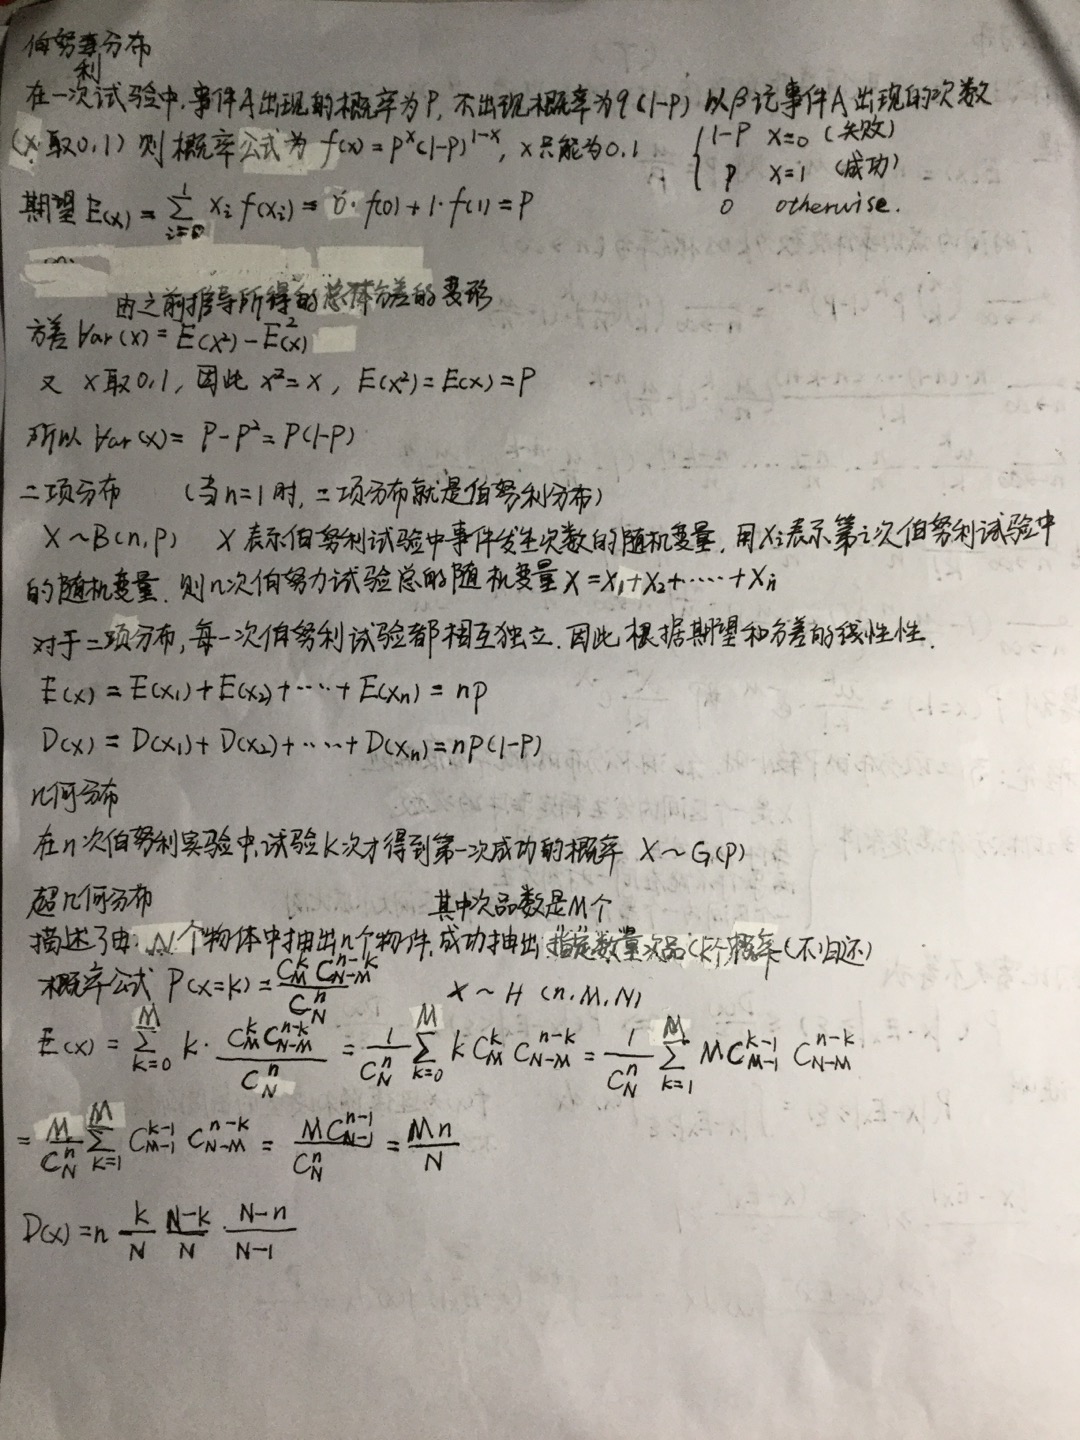 伯努利分布
在一次试验中,事件A出现的概率为P,不出现概率为q(1-P) 以β记事件A出现的次数
(x取0,1) 则概率公式为 f(x)=P^x(1-P)^{1-x}, x只能为0.1
{ 1-P x=0 (失败)
P x=1 (成功)
0 otherwise.
期望 E(x) = \sum_{i=0}^{1} x_i f(x_i) = 0·f(0)+1·f(1)=P
由之前推导所得的总体方差的变形
方差 Var(x)=E(x²)-E²(x)
又 x取0,1, 因此 x²=x, E(x²)=E(x)=P
所以 Var(x)= P-P²=P(1-P)
二项分布 (当n=1时,二项分布就是伯努利分布)
X~B(n,p) X表示伯努利试验中事件发生次数的随机变量,用Xi表示第i次伯努利试验中
的随机变量,则n次伯努力试验总的随机变量X=X₁+X₂+……+Xn
对于二项分布,每一次伯努利试验都相互独立.因此根据期望和方差的线性性.
E(x) = E(x₁)+E(x₂)+……+E(xn) = np
D(x) = D(x₁)+D(x₂)+……+D(xn)=np(1-P)
几何分布
在n次伯努利实验中,试验K次才得到第一次成功的概率 X~G(p)
超几何分布
其中次品数是M个
描述了由N个物体中抽出n个物件,成功抽出指定数量次品(k个)概率(不归还)
概率公式 P(x=k)=\frac{C_M^k C_{N-M}^{n-k}}{C_N^n} X~H (n,M,N)
E(x) = \sum_{k=0}^{M} k·\frac{C_M^k C_{N-M}^{n-k}}{C_N^n} = \frac{1}{C_N^n} \sum_{k=0}^{M} k C_M^k C_{N-M}^{n-k} = \frac{1}{C_N^n} \sum_{k=1}^{M} M C_{M-1}^{k-1} C_{N-M}^{n-k}
= \frac{M}{C_N^n} \sum_{k=1}^{M} C_{M-1}^{k-1} C_{N-M}^{n-k} = \frac{M C_{N-1}^{n-1}}{C_N^n} = \frac{Mn}{N}
D(x) = n \frac{k}{N} \frac{N-k}{N} · \frac{N-n}{N-1}